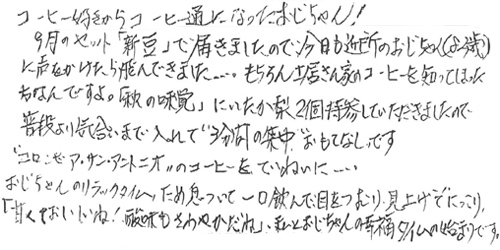 コーヒー好きからコーヒー通になったおじちゃん!
9月のセット「新豆」で届きましたので今日も近所のおじちゃん(歳)
に声をかけたら飛んできました…。もちろん土居さん家のコーヒーを知ってしまった
おなんですよ。「秋の味覚」にいたか梨2個持参していただきましたので
普段より気合いまで入れて"3分間の集中"おもてなしです
"コロンビア・サン・アントニオ"のコーヒーをていねいに……
おじちゃんのリラックスタイム、ため息ついて一口飲んで目をつむり、見上げてにっこり。
「甘くておいしいね!酸味もさわやかだね」、私とおじちゃんの幸福タイムの始まりです。